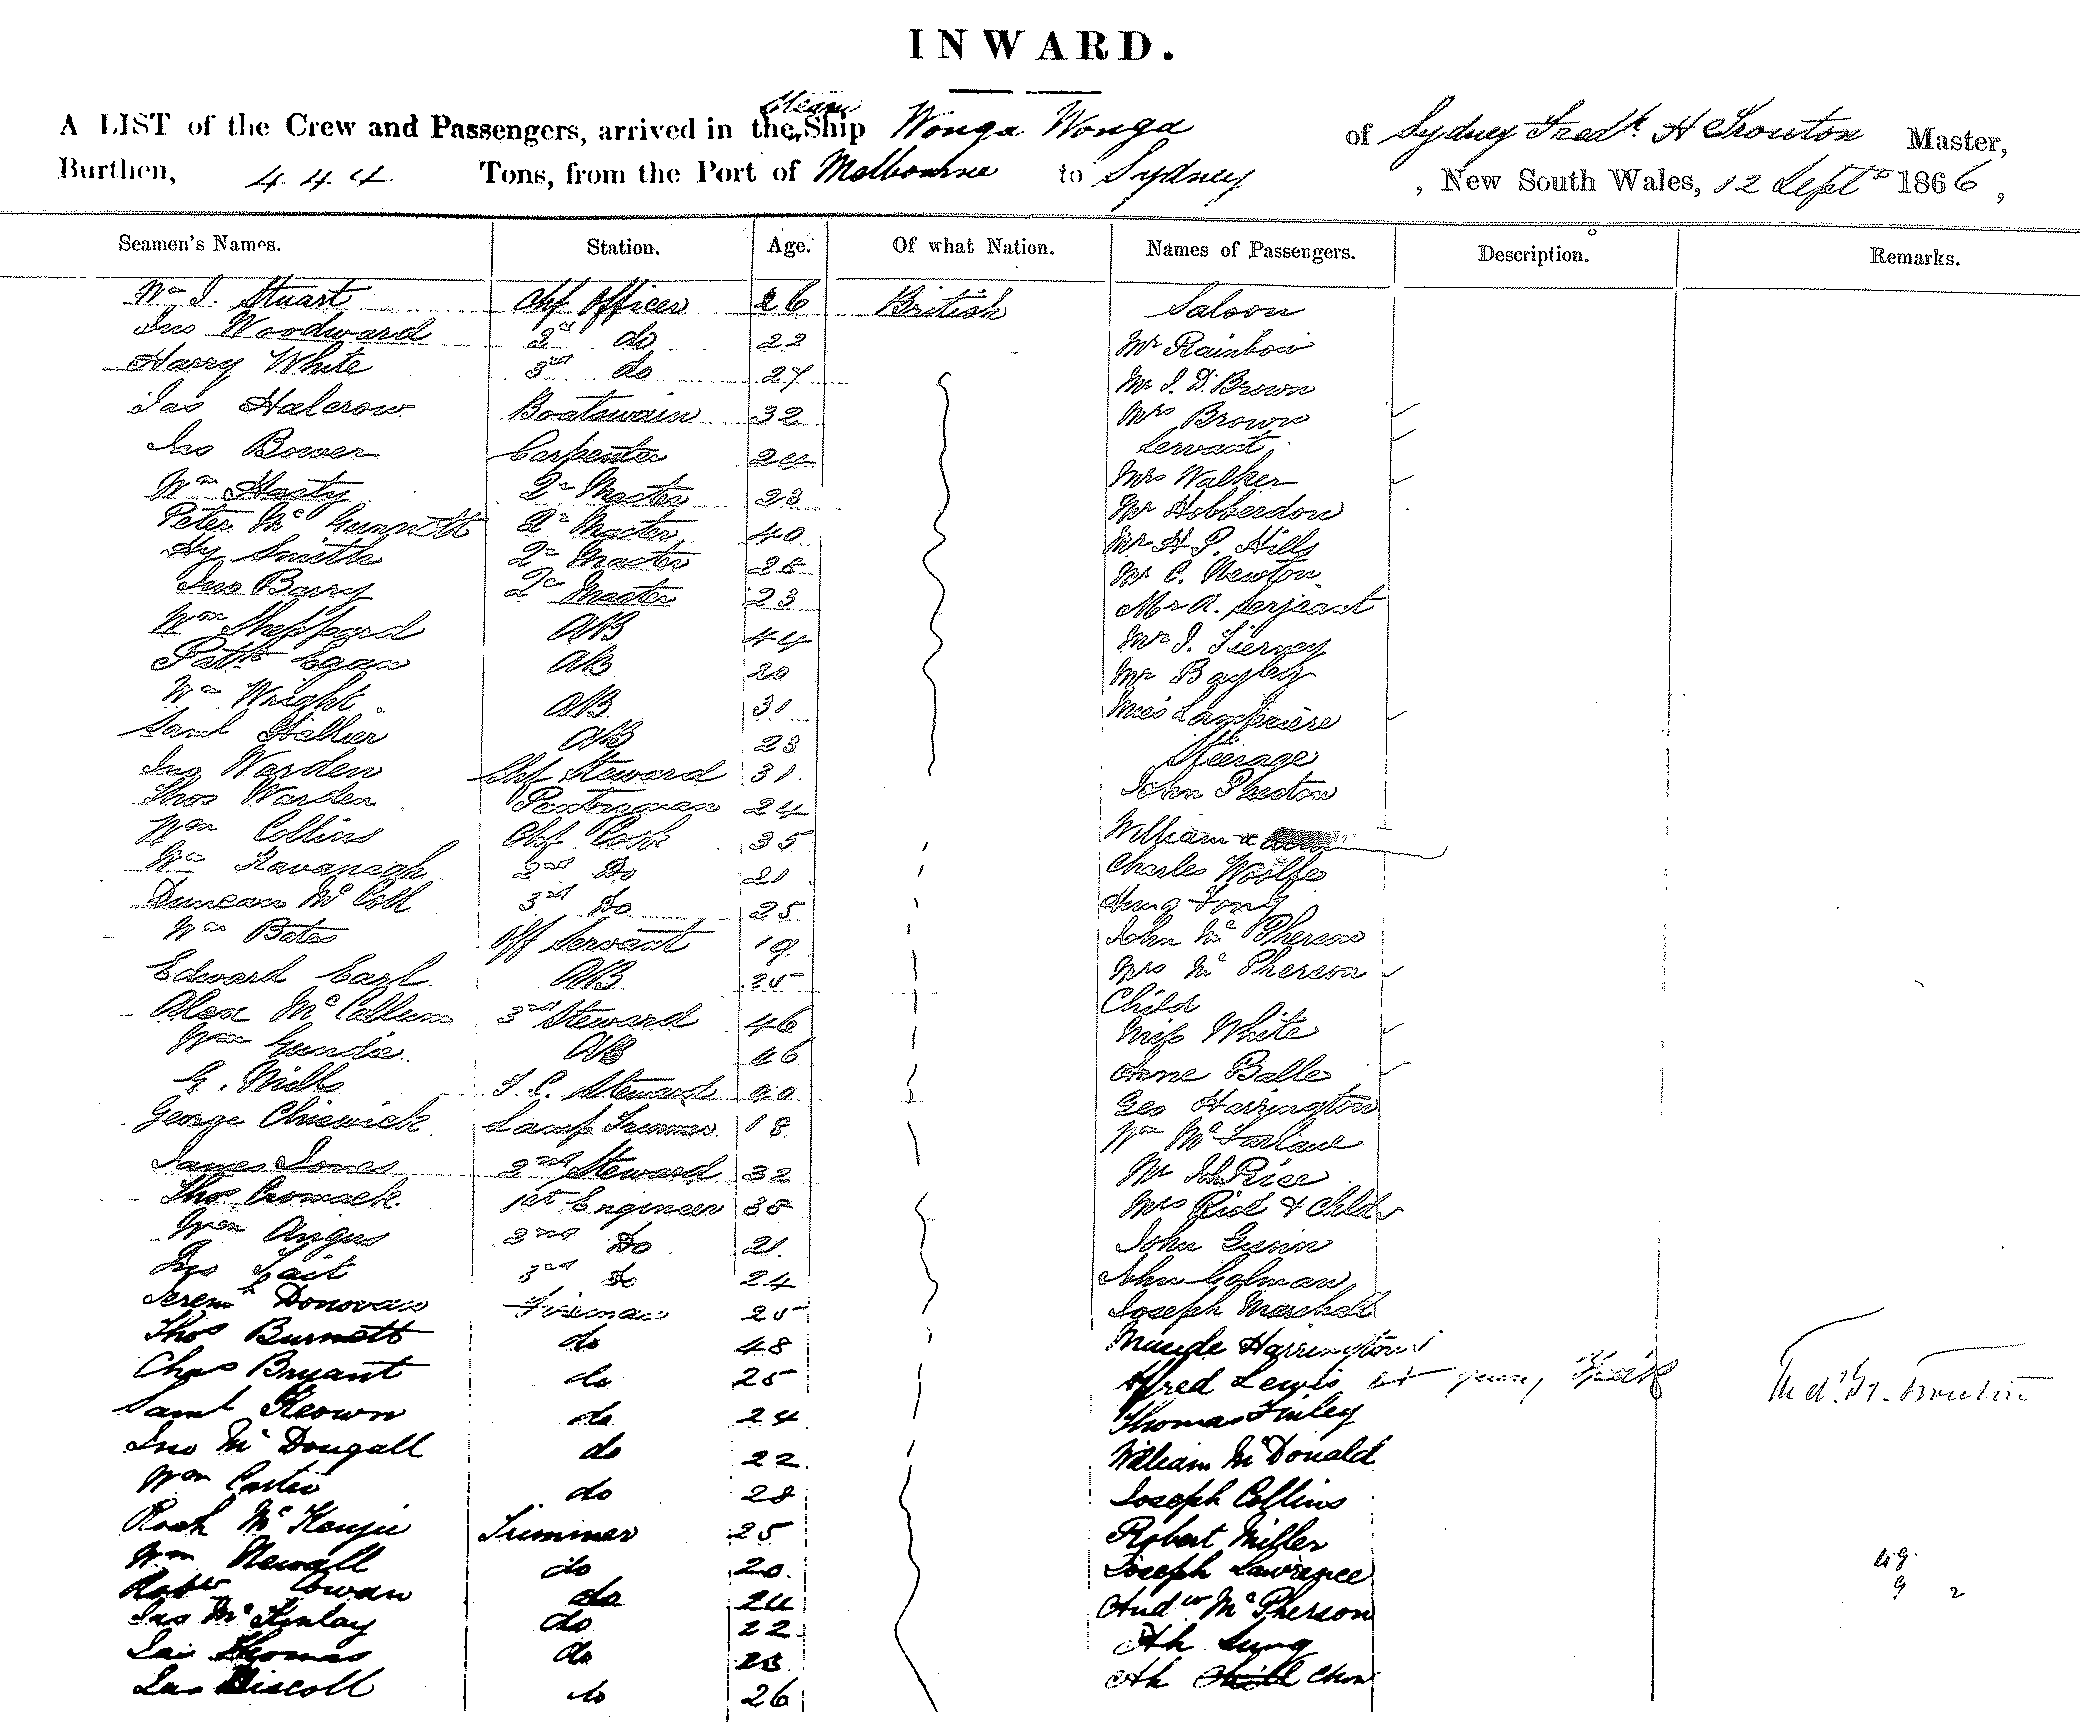 INWARD.
A LIST of the Crew and Passengers, arrived in the Steam Ship Wonga Wonga of Sydney Fredk. H Trouton Master,
Burthen, 444 Tons, from the Port of Melbourne to Sydney, New South Wales, 12 Septr 1866,
Seamen's Names. Station. Age. Of what Nation. Names of Passengers. Description. Remarks.
Wm J. Stuart Chf Officer 26 British Saloon
Jno Woodward 2nd do 22 Mr Rainbow
Harry White 3rd do 27 Mr J. D. Brown
Jas Halcrow Boatswain 32 Mrs Brown
Jno Bower Carpenter 24 Servant
Wm Hasty Qr Master 23 Mrs Walker
Peter Mc Qr Master 40 Mr Hobberdon
Hy Smith Qr Master 28 Mr H P. Hills
Jno Barry Qr Master 23 Mr C. Newton
Wm Sheppard AB 44 Mr A. Serjeant
Patk Egan AB 20 Mr J. Tierney
Wm Wright AB 31 Mr Bayley
Saml Hallier AB 23 Miss
Jno Warden Chf Steward 31 Steerage
Thos Warden Pantryman 24 John
Wm Collins Chf Cook 35 William
Wm Kavanagh 2nd Do 21 Charles Woolfe
Duncan Mc Coll 3rd Do 25 Hung Fong
Wm Bates Off Servant 19 John Mc Pherson
Edward Earl AB 25 Mrs Mc Pherson
Alex Mc Callum 3rd Steward 46 Child
Wm AB 46 Miss White
G. Mills F. C. Steward Anne Balle
George Chiswick Lamp Trimmer 18 Geo Harrington
James Jones 2nd Steward 32 Wm Mc Farlane
Thos Cromack 1st Engineer 35 Mr Price
Wm Angus 2nd Do 21 Mrs Rid & Child
Jno Tait 3rd do 24 John Gunn
Jeremh Donovan Fireman 25 John Colman
Thos Burnett do 48 Joseph Marshall
Chas Bryant do 25 Maude Harrington
Saml Keown do 24 Alfred Lewis Fredk. H. Trouton
Jno Mc Dougall do 22 Thomas Finley
Wm Curtis do 28 William McDonald
Rodk Mc Kenzie Trimmer 25 Joseph Collins
Wm Newall do 20 Robert Miller
Robt Cowan do 24 Joseph Lawrence
Jas Mc Kinlay do 22 Andw McPherson
Jas Thomas do 23 Ah Sung
Jas Discoll do 26 Ah Chow
49
9 2